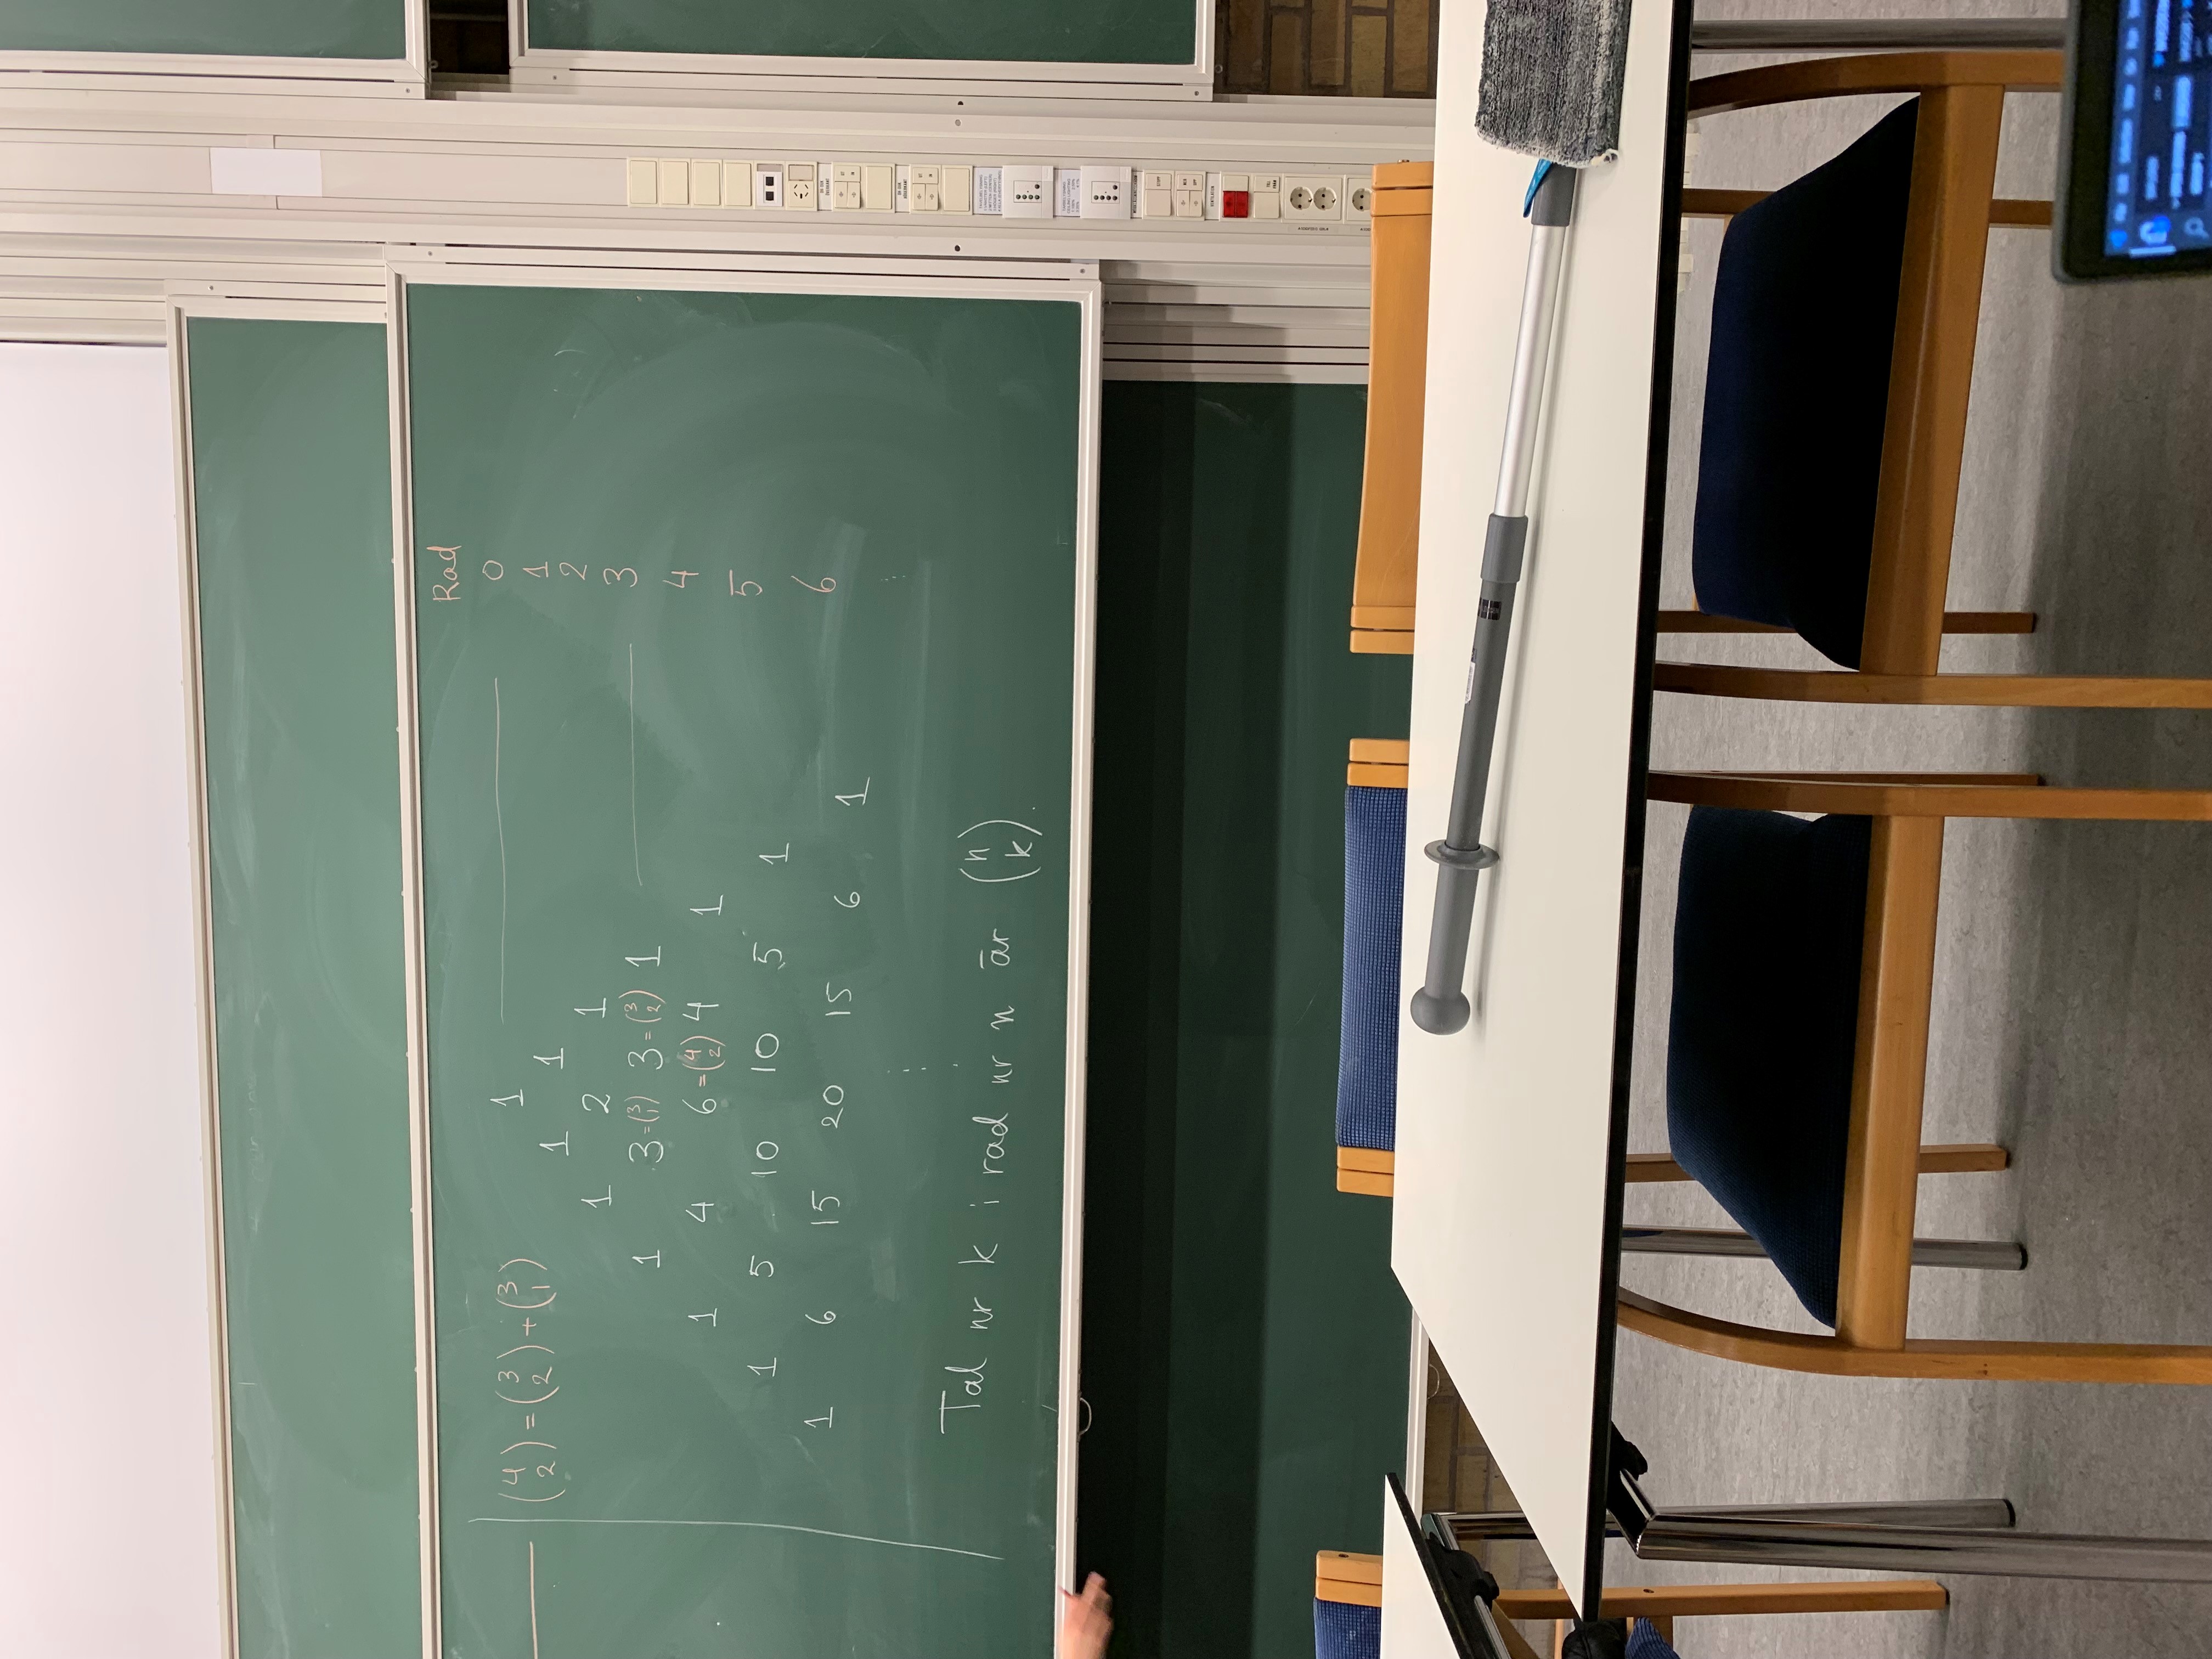 Rad
(4 2) = (3 2) + (3 1)
1 0
1 1 1
1 2 1 2
1 3=(3 1) 3=(3 2) 1 3
1 4 6=(4 2) 4 1 4
1 5 10 10 5 1 5
1 6 15 20 15 6 1 6
Tal nr k i rad nr n är (n k).